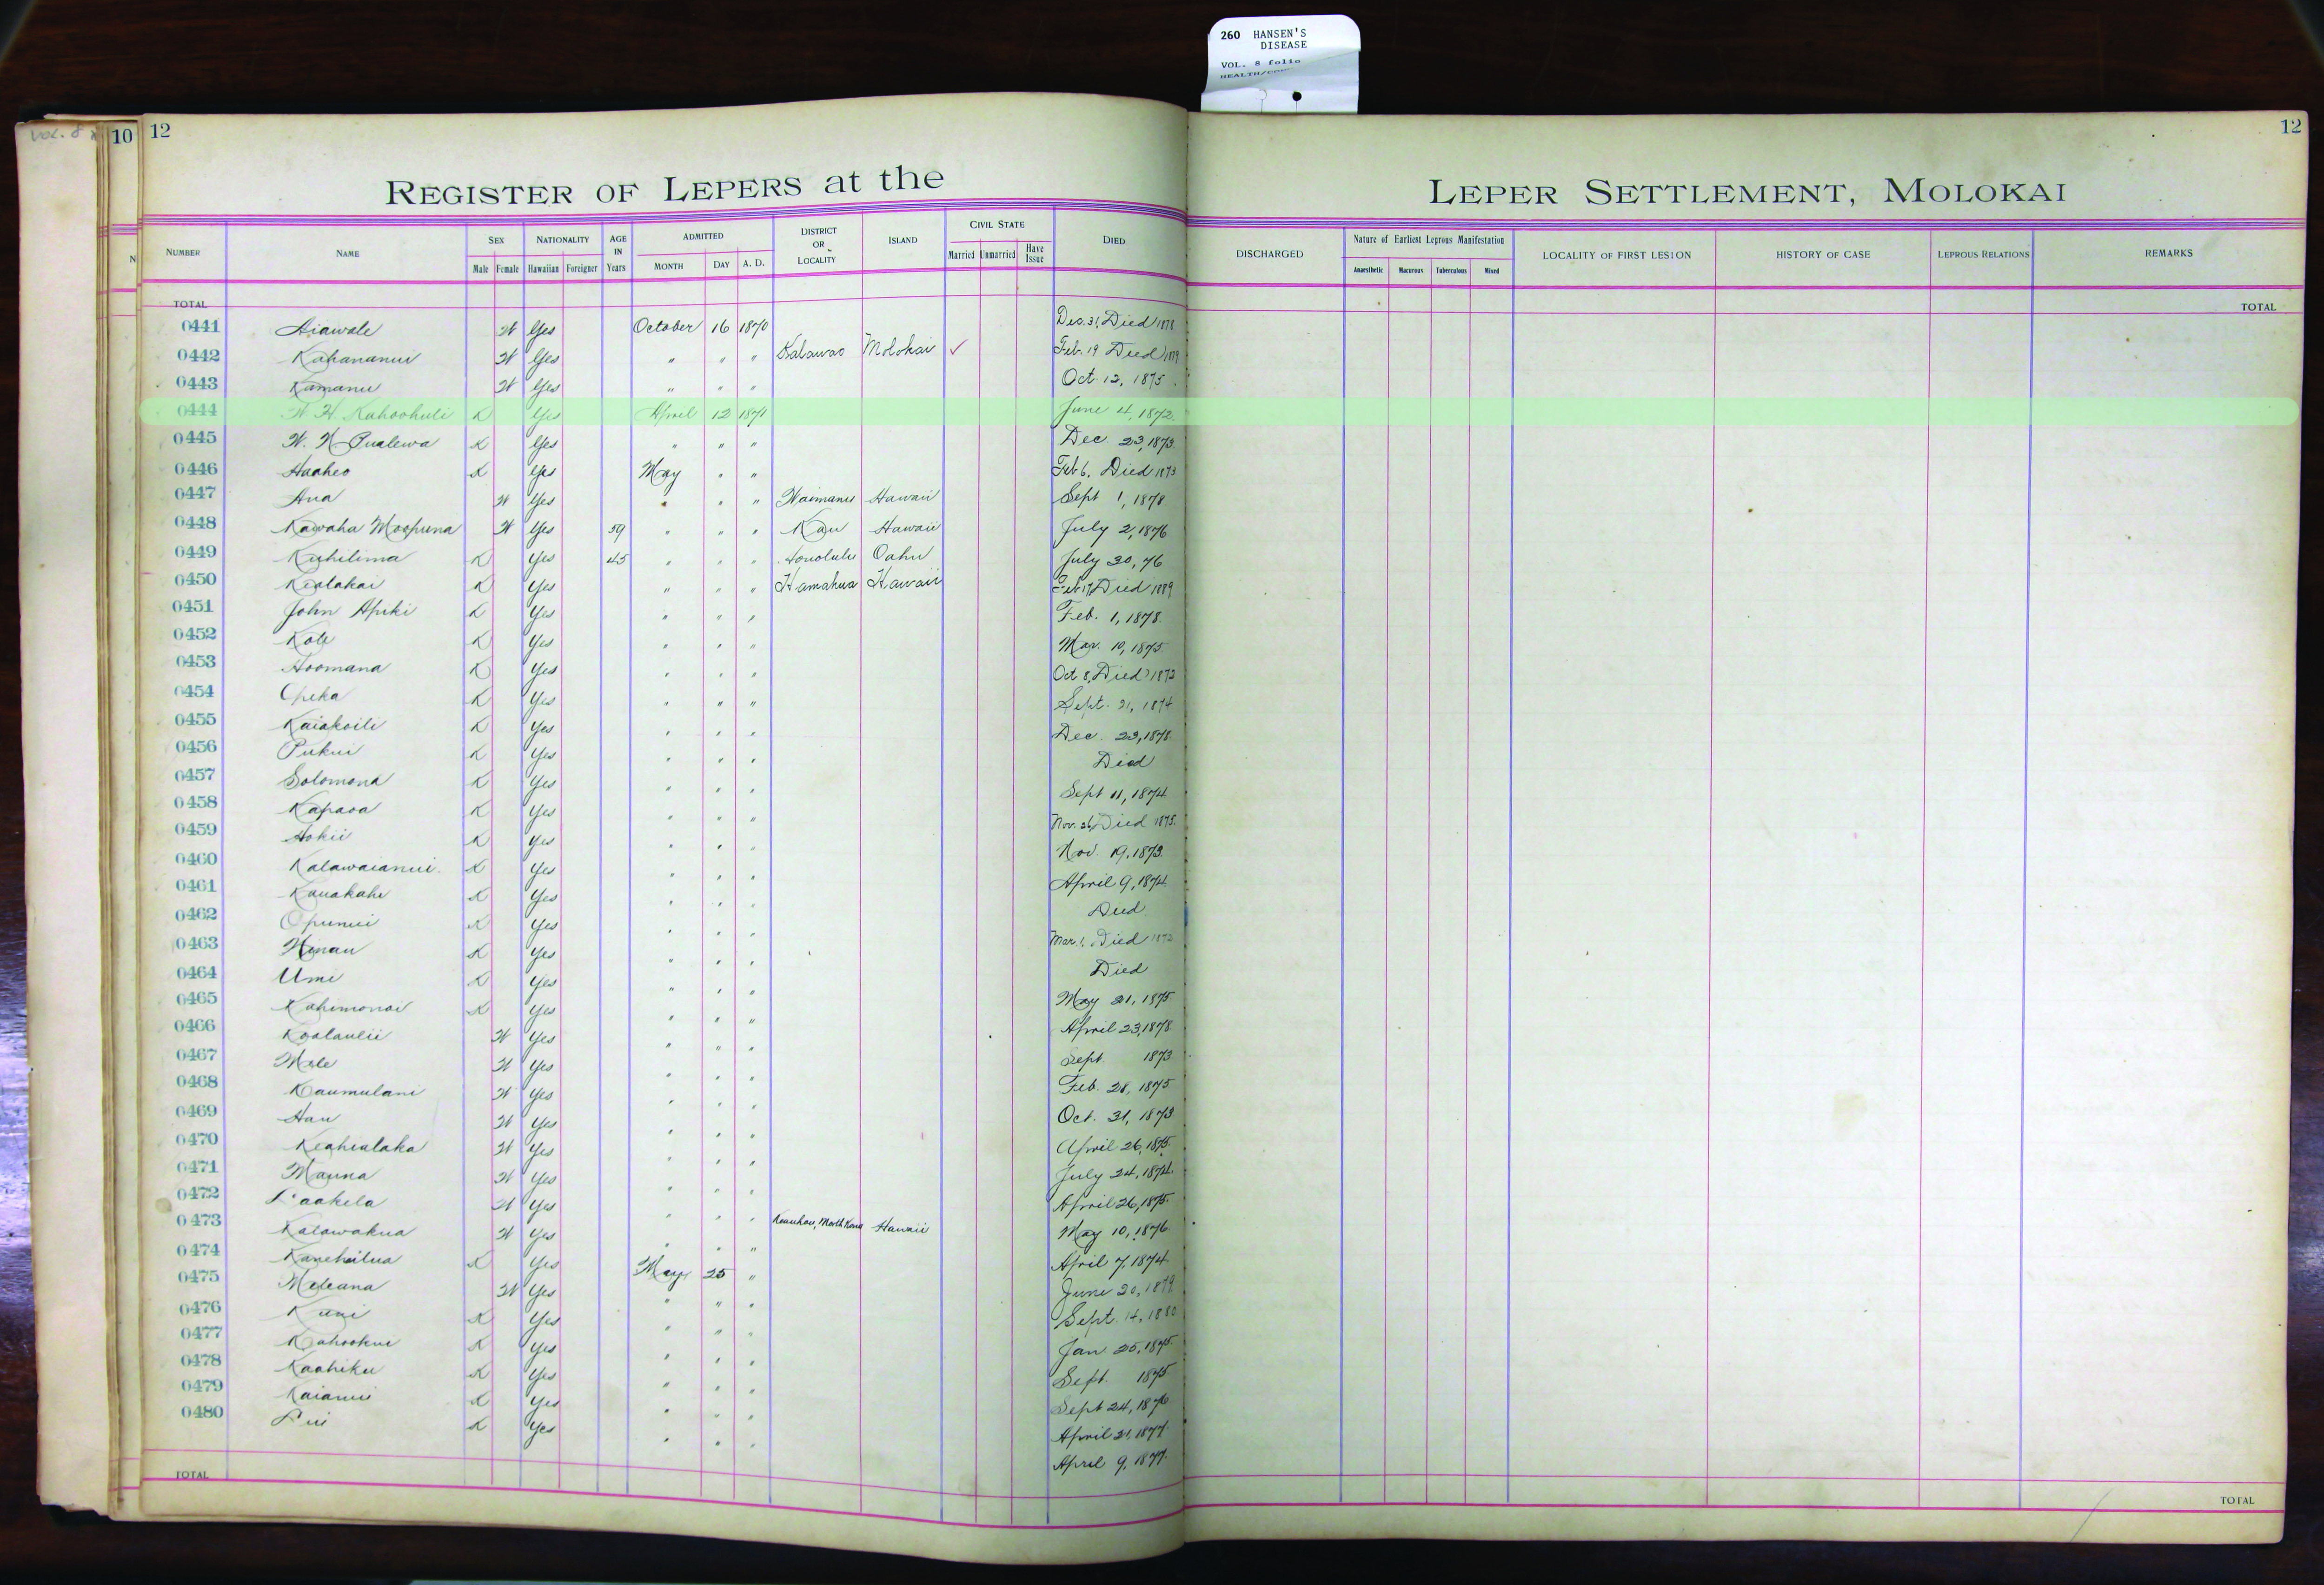 260 HANSEN'S
DISEASE
VOL. 8 folio
VOL. 8
10
12
12
REGISTER OF LEPERS at the LEPER SETTLEMENT, MOLOKAI
NUMBER NAME SEX NATIONALITY AGE IN Years ADMITTED DISTRICT OR LOCALITY ISLAND CIVIL STATE DIED DISCHARGED Nature of Earliest Leprous Manifestation LOCALITY OF FIRST LESION HISTORY OF CASE LEPROUS RELATIONS REMARKS
Male Female Hawaiian Foreigner MONTH DAY A. D. Married Unmarried Have Issue Anaesthetic Macurous Tuberculous Mixed
TOTAL TOTAL
0441 Aiawale W Yes October 16 1870 Dec. 31, Died 1878
0442 Kahananui W Yes " " " Kalawao Molokai ✓ Feb. 19 Died 1879
0443 Kamanu W Yes " " " Oct. 12, 1875
0444 W. H. Kahoohuli K Yes April 12 1871 June 4, 1872
0445 W. N Pualewa K Yes " " " Dec 23, 1873
0446 Haaheo K Yes May " " Feb 6, Died 1873
0447 Ana W Yes " " " Waimanu Hawaii Sept 1, 1878
0448 Kawaha Moopuna W Yes 59 " " " Kau Hawaii July 2, 1876
0449 Kuhilima K Yes 45 " " " Honolulu Oahu July 30, 76
0450 Kealakai K Yes " " " Hamakua Hawaii Feb 17, Died 1889
0451 John Apiki K Yes " " " Feb. 1, 1878
0452 Kole K Yes " " " Mar. 10, 1875
0453 Hoomana K Yes " " " Oct 8, Died 1873
0454 Opeka K Yes " " " Sept. 21, 1874
0455 Kaiakoili K Yes " " " Dec. 23, 1878
0456 Pukui K Yes " " " Died
0457 Solomona K Yes " " " Sept 11, 1874
0458 Kapaoa K Yes " " " Nov. 26, Died 1875
0459 Hokii K Yes " " " Nov. 19, 1873
0460 Kalawaianui K Yes " " " April 9, 1874
0461 Kauakahi K Yes " " " Died
0462 Opunui K Yes " " " Mar. 1, Died 1873
0463 Hinau K Yes " " " Died
0464 Umi K Yes " " " May 21, 1875
0465 Kahimonoi K Yes " " " April 23, 1878
0466 Koolaulii W Yes " " " Sept 1873
0467 Mele W Yes " " " Feb. 28, 1875
0468 Kaumulani W Yes " " " Oct. 31, 1873
0469 Hau W Yes " " " April 26, 1875
0470 Keahialaka W Yes " " " July 24, 1874
0471 Mauna W Yes " " " April 26, 1875
0472 Laakela W Yes " " " Keauhou, North Kona Hawaii May 10, 1876
0473 Kalawakua W Yes " " " April 7, 1874
0474 Kanehailua K Yes May 25 " June 20, 1879
0475 Meleana W Yes " " " Sept. 14, 1880
0476 Kuni K Yes " " " Jan. 25, 1875
0477 Kahookui K Yes " " " Sept. 1875
0478 Kaahiku K Yes " " " Sept 24, 1876
0479 Kaianui K Yes " " " April 21, 1877
0480 Lui K Yes " " " April 9, 1877
TOTAL TOTAL